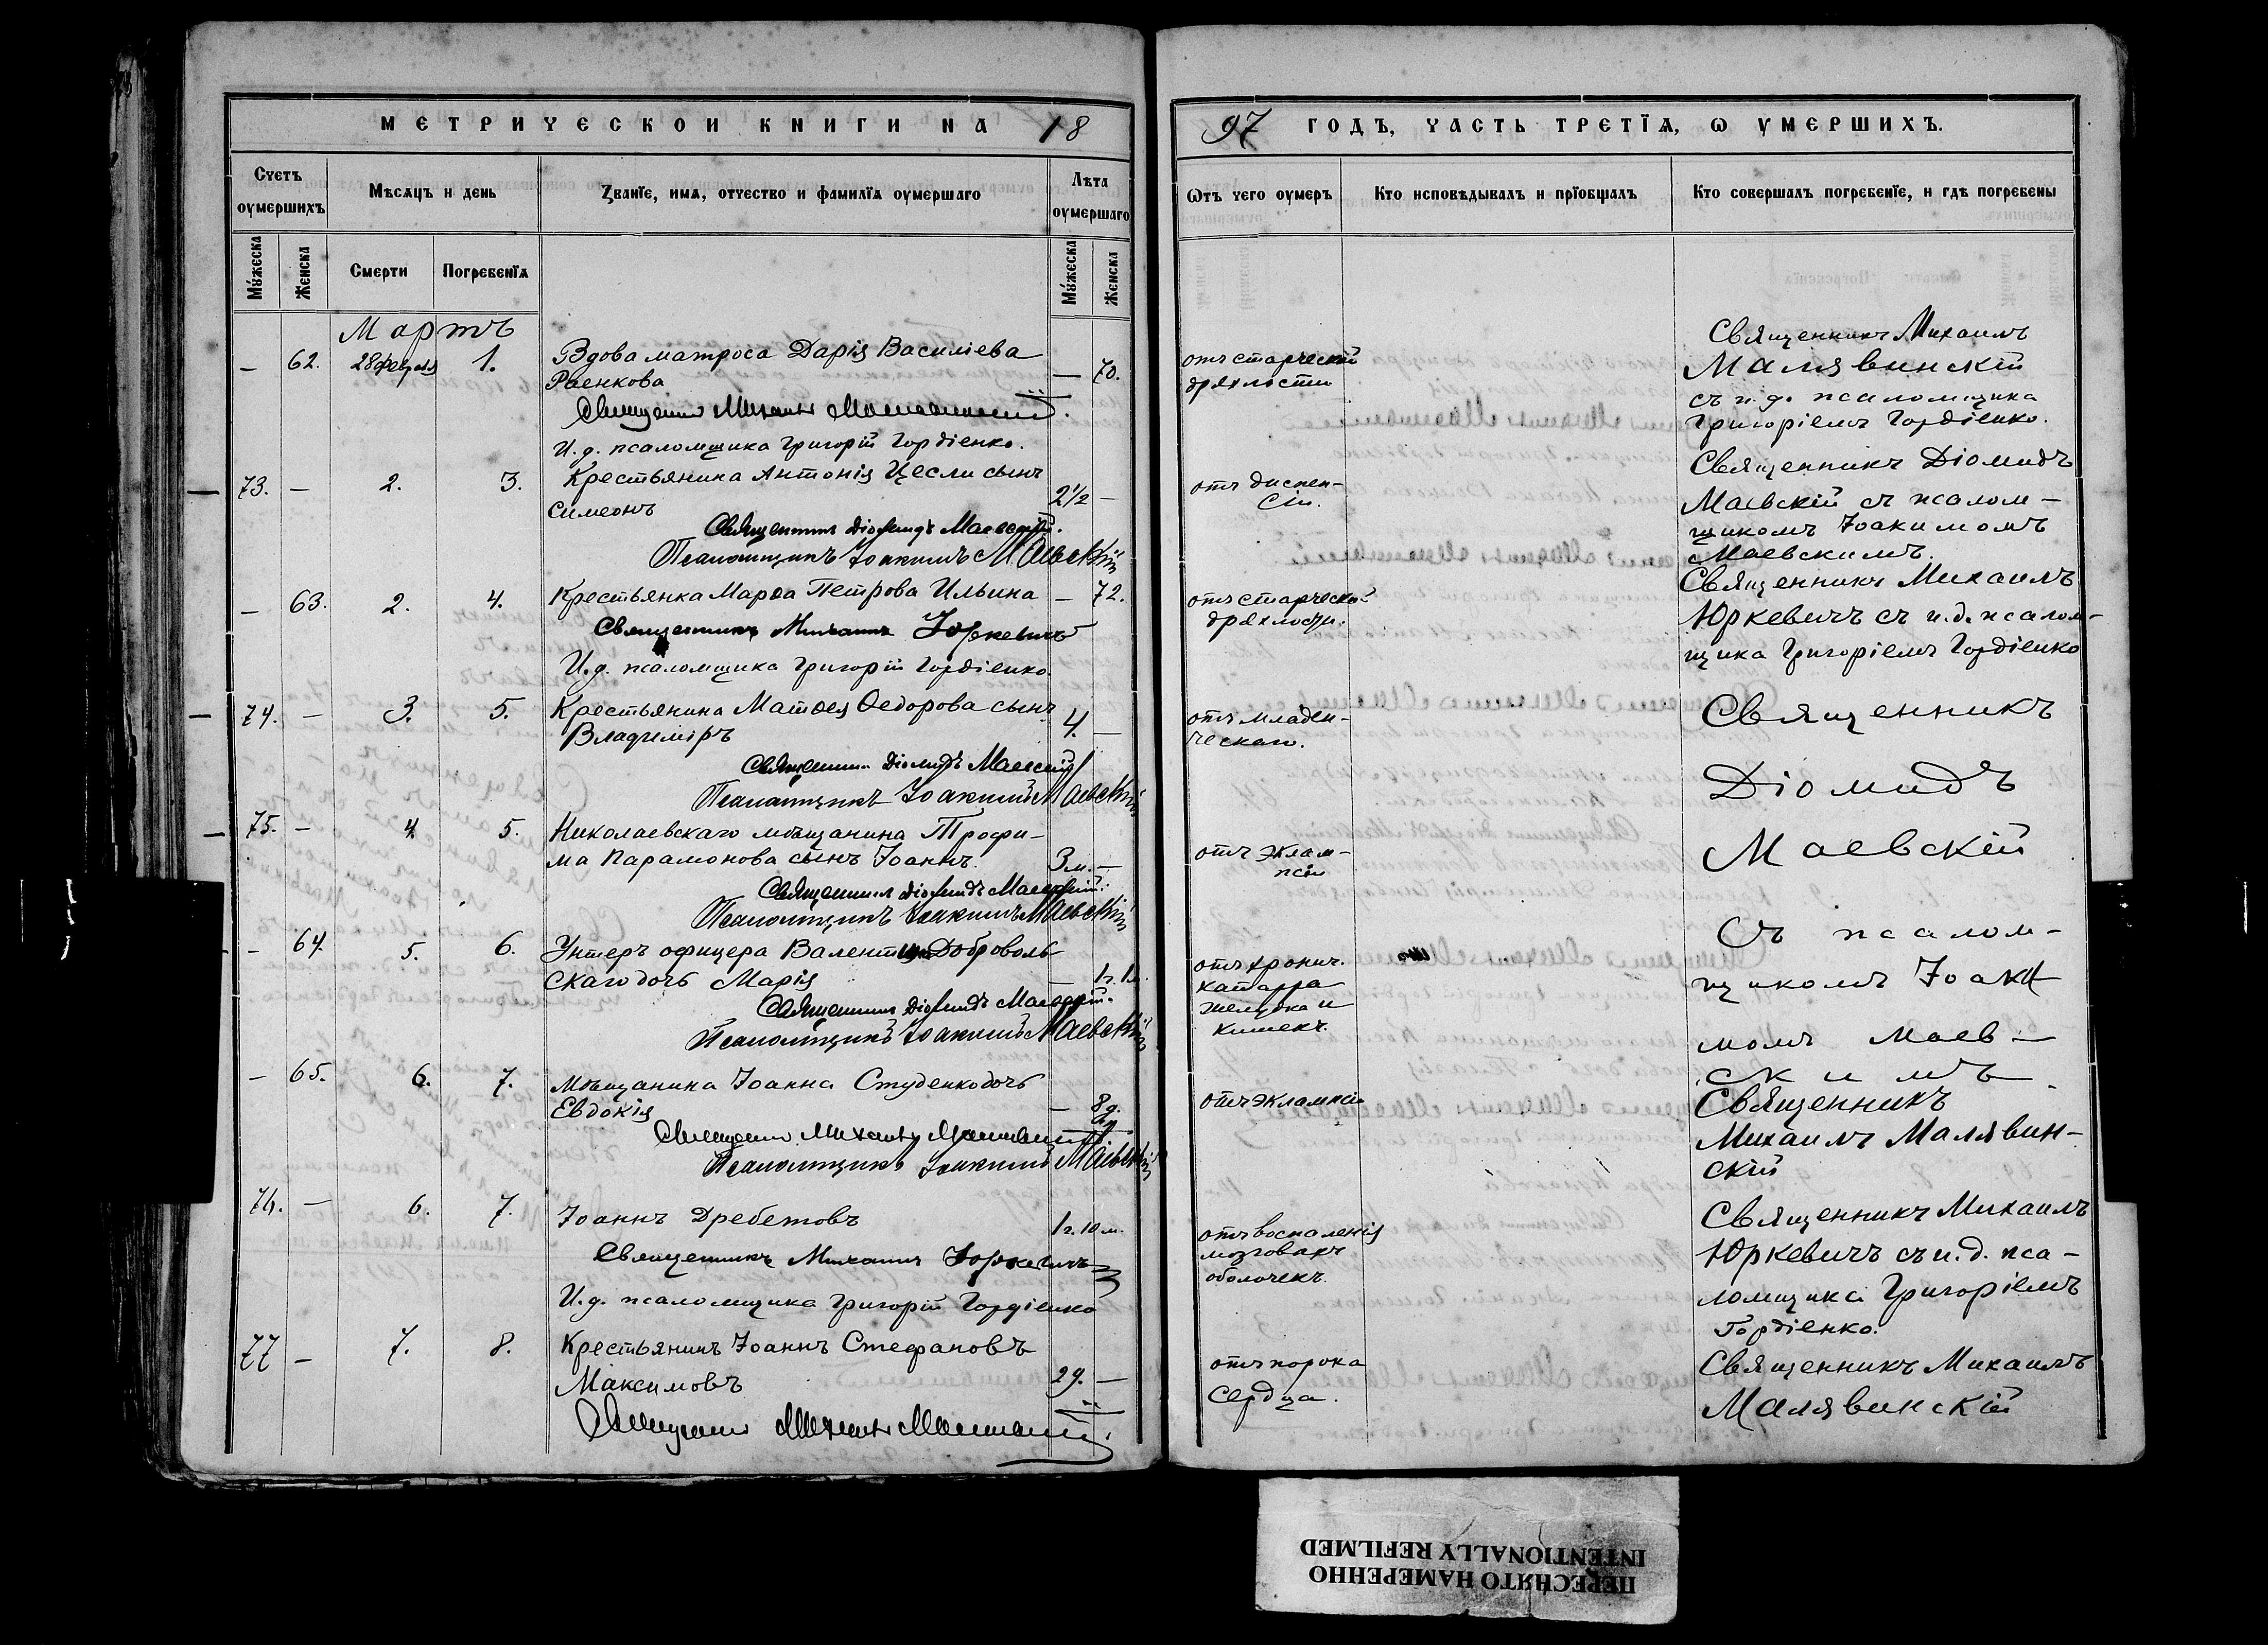 МЕТРИЧЕСКОЙ КНИГИ НА 18
97 ГОДЪ, ЧАСТЬ ТРЕТІЯ, Ѡ УМЕРШИХЪ.
Счетъ оумершихъ
Мѣсяцъ и день
Званїе, имѧ, отчество и фамилїѧ оумершаго
Лѣта оумершаго
Ѿтъ чего оумеръ
Кто исповѣдывалъ и прїобщалъ
Кто совершалъ погребенїе, и гдѣ погребены
Мꙋжеска
Женска
Смерти
Погребенїѧ
Мꙋжеска
Женска
Мартъ
— 62. 28 Февраля 1. Вдова матроса Дарія Василіева — 70.
Раенкова
Священникъ Михаилъ Малявинскій.
И. д. псаломщика Григорій Гордіенко.
отъ старческой
дряхлости
Священникъ Михаилъ
Малявинскій
съ и. д. псаломщика
Григоріемъ Гордіенко.
73. — 2. 3. Крестьянина Антонія Цесли сынъ
Симеонъ 2½ —
Священникъ Діомидъ Маевскій.
Псаломщикъ Іоакимъ Маевскій
отъ диспеп-
сіи.
Священникъ Діомидъ
Маевскій съ псалом-
щикомъ Іоакимомъ
Маевскимъ.
— 63. 2. 4. Крестьянка Марѳа Петрова Ильина — 72.
Священникъ Михаилъ Юркевичъ
И. д. псаломщика Григорій Гордіенко.
отъ старческой
дряхлости.
Священникъ Михаилъ
Юркевичъ съ и. д. псалом-
щика Григоріемъ Гордіенко
74. — 3. 5. Крестьянина Матѳея Ѳедорова сынъ
Владиміръ 4. —
Священникъ Діомидъ Маевскій
Псаломщикъ Іоакимъ Маевскій
отъ младен-
ческаго.
Священникъ
Діомидъ
Маевскій
Съ псалом-
щикомъ Іоаки
момъ Маев-
скимъ.
75. — 4. 5. Николаевскаго мѣщанина Трофи-
ма Парамонова сынъ Іоаннъ. 3 м. —
Священникъ Діомидъ Маевскій.
Псаломщикъ Іоакимъ Маевскій
отъ эклам-
псіи
— 64. 5. 6. Унтеръ офицера Валентина Доброволь-
скаго дочь Марія — 1 г. 1 м.
Священникъ Діомидъ Маевскій.
Псаломщикъ Іоакимъ Маевскій
отъ хронич.
катарра
желудка и
кишекъ.
— 65. 6. 7. Мѣщанина Іоанна Студенко дочь
Евдокія — 8 д.
Священникъ Михаилъ Малявинскій
Псаломщикъ Іоакимъ Маевскій
отъ эклампсіи
Священникъ
Михаилъ Малявин-
скій
76. — 6. 7. Іоаннъ Дребетовъ 1 г. 10 м.
Священникъ Михаилъ Юркевичъ
И. д. псаломщика Григорій Гордіенко
отъ воспаленія
мозговыхъ
оболочекъ.
Священникъ Михаилъ
Юркевичъ съ и. д. пса-
ломщика Григоріемъ
Гордіенко.
77 — 7. 8. Крестьянинъ Іоаннъ Стефановъ
Максимовъ 29. —
Священникъ Михаилъ Малявинскій
отъ порока
сердца.
Священникъ Михаилъ
Малявинскій
ПЕРЕСНЯТО НАМЕРЕННО
INTENTIONALLY REFILMED